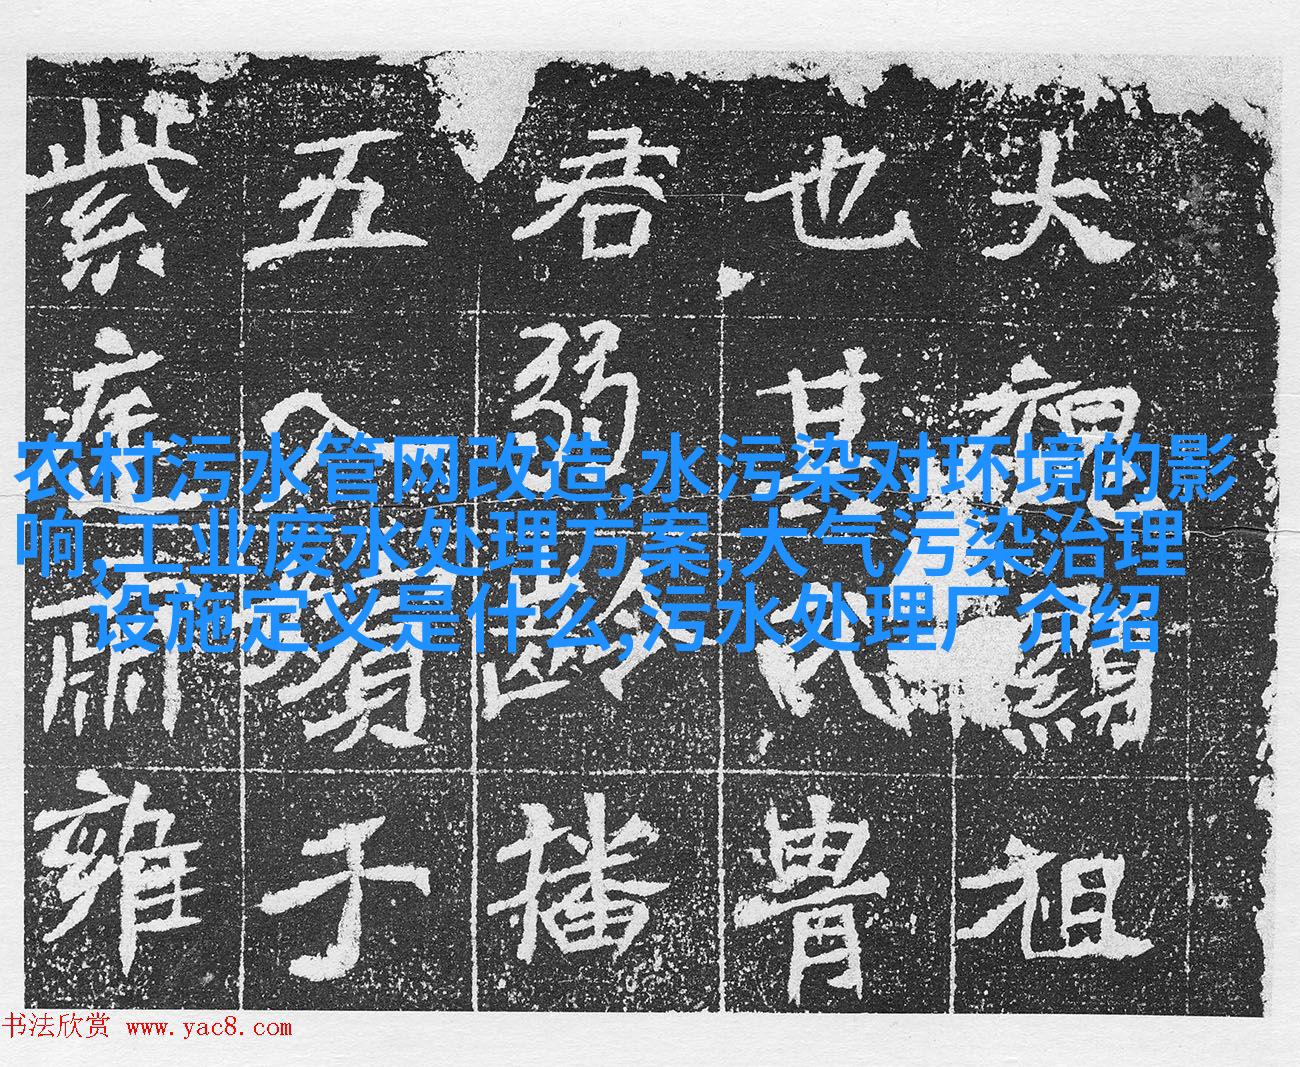 大祖𦀗祖
也其氏胄
君弱龄播
五人贡于
紫庭肃雍
农村污水管网改造,水污染对环境的影
响,工业废水处理方案,大气污染治理
设施定义是什么,污水处理厂介绍
书法欣赏 www.yac8.com